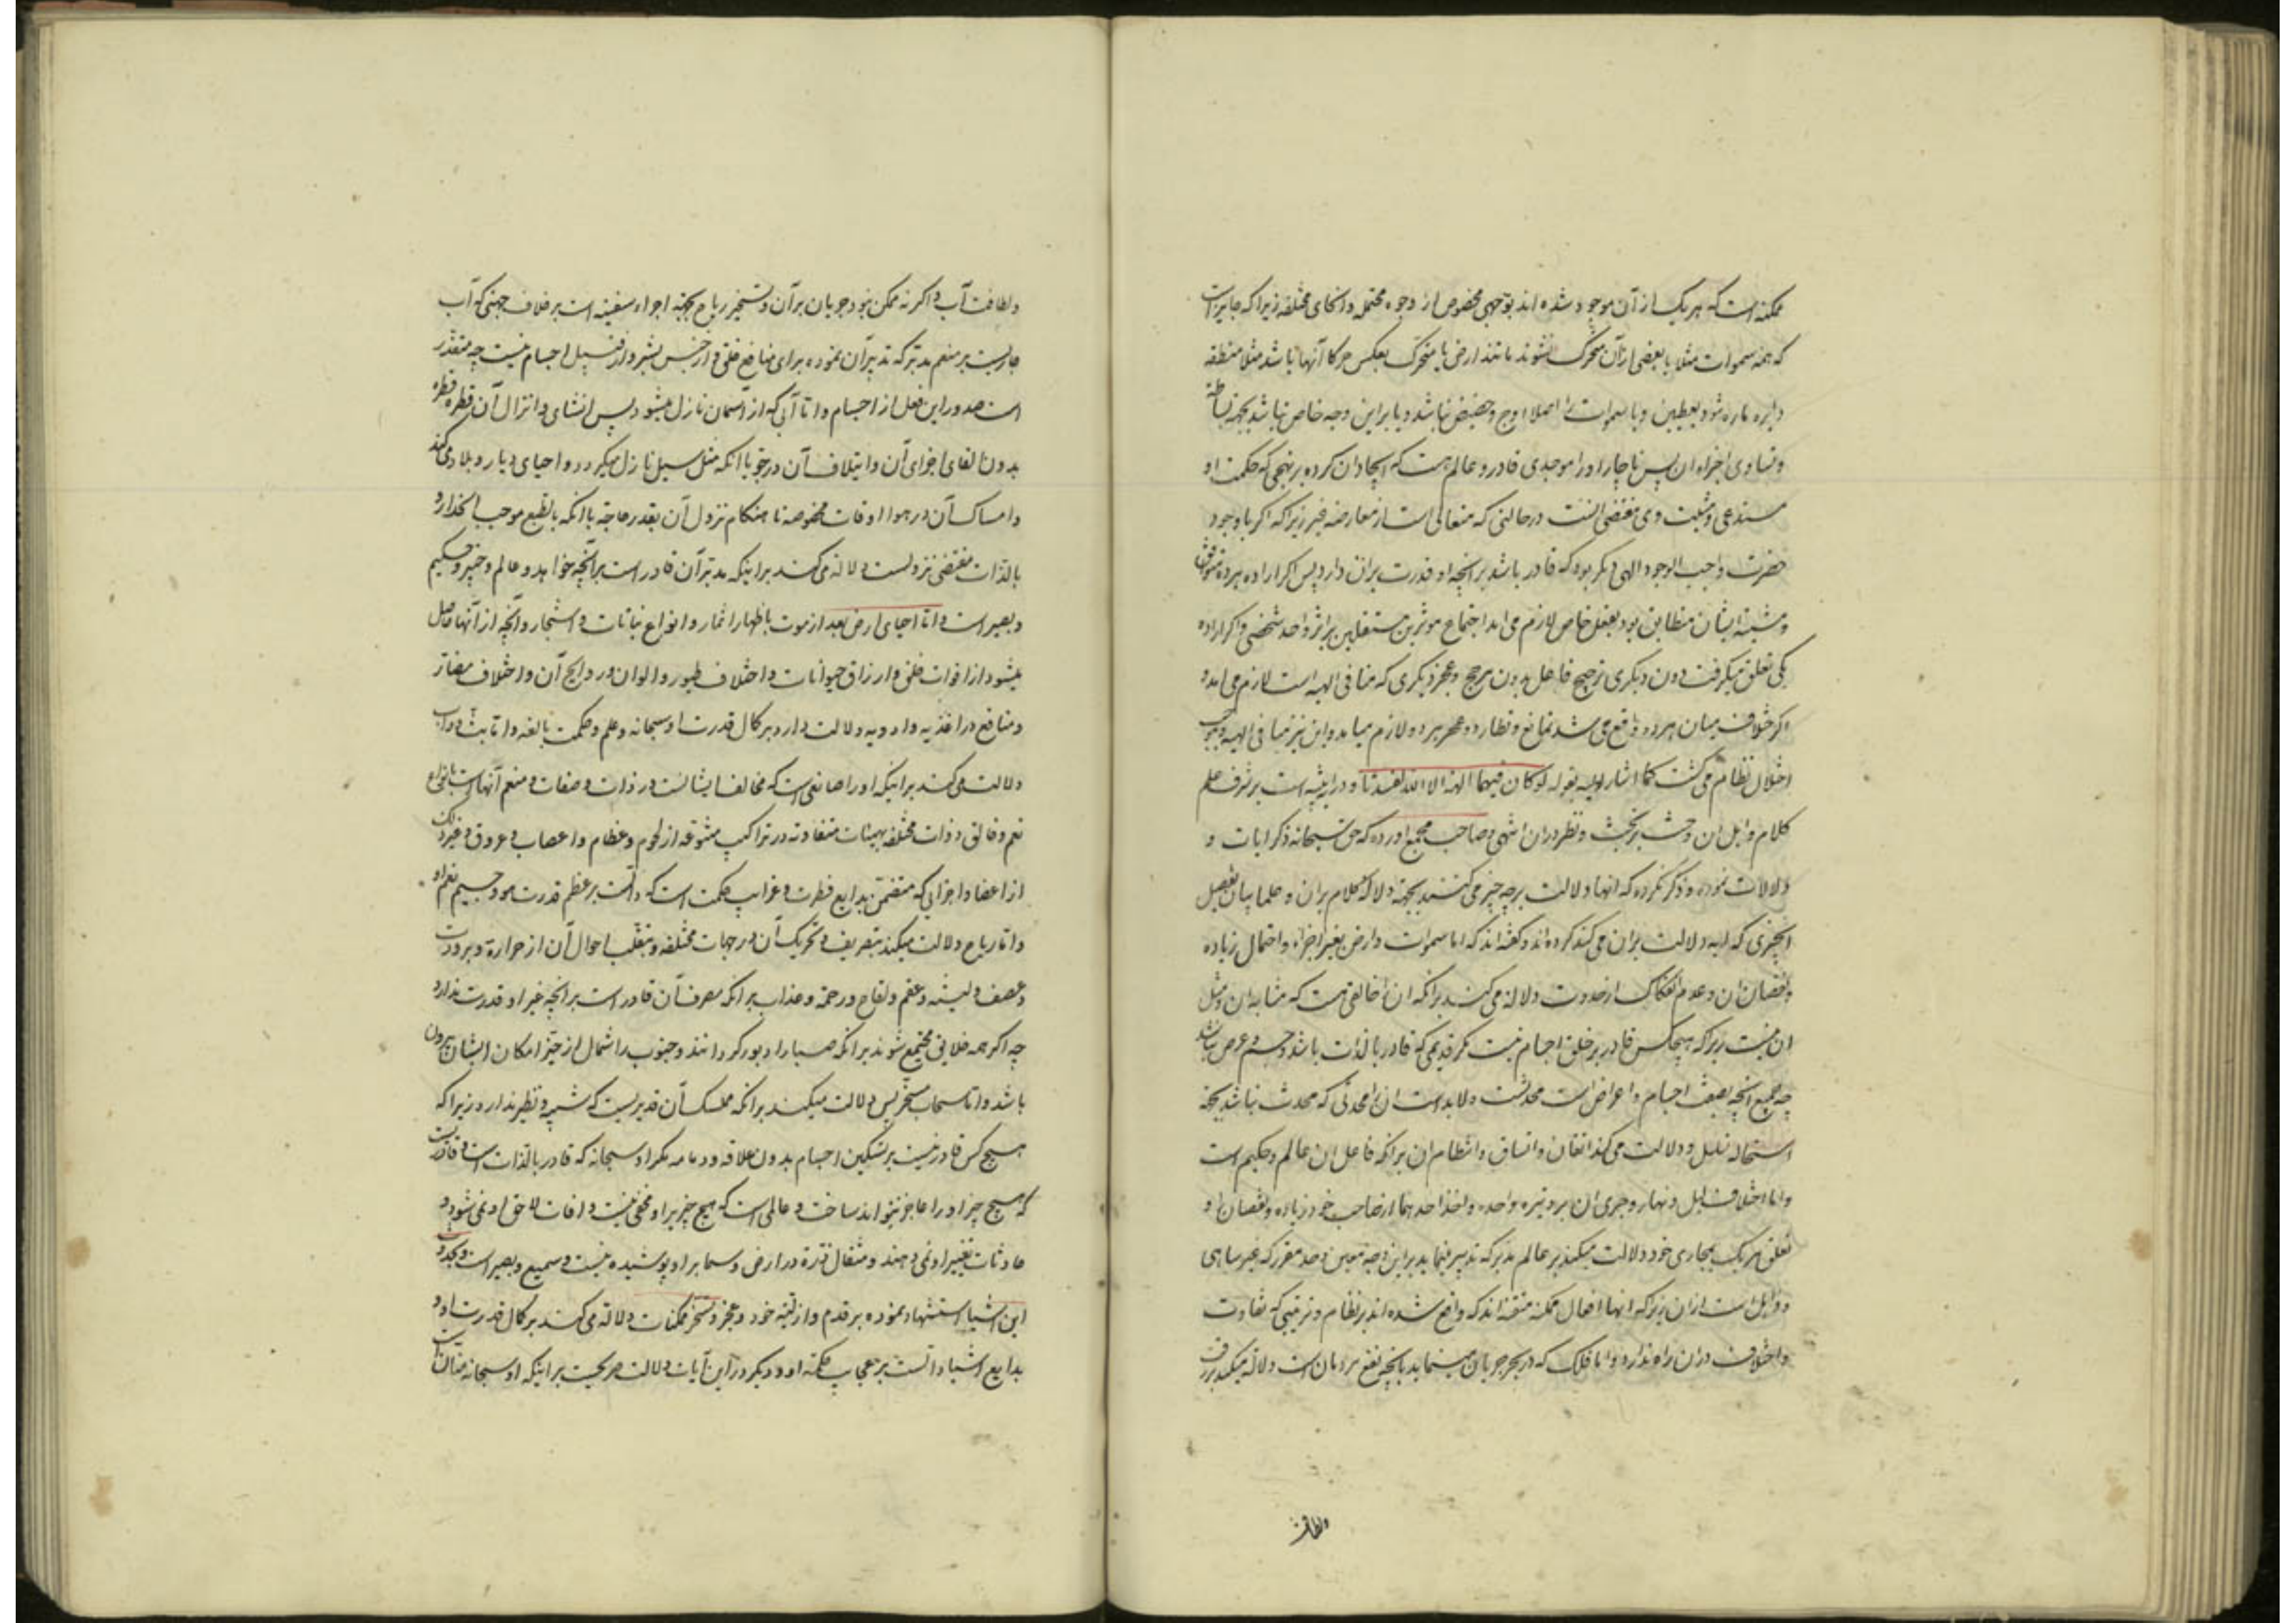 ممکنه است که هر یک از آن موجود شده اند بوجهی مخصوص از وجوه محتمله و انحای مختلفه زیرا که جایز است
که همه سموات مثلا یا بعضی از آن متحرک نشوند مانند ارض یا متحرک بعکس حرکات آنها باشد مثلا منطقه
دایره ماره شود بقطبین و یا سموات را اصلا اوج و حضیض نباشد و یا بر این وجه خاص نباشد بجهة بساطة
و تساوی اجزاء ان پس ناچار او را موجدی قادر و عالم هست که ایجاد ان کرده بر نهجی که حکمت او
مستدعی و مشیت وی مقتضی انست در حالتی که متعالی است از معارضه غیر زیرا که اگر با وجود
حضرت واجب الوجود الهی دیگر بود که قادر باشد بر انچه او قدرت بران دارد پس اگر اراده هر دو متوافق
و مشیة ایشان مطابق بود بفعل خاص لازم می اید اجتماع موثرین مستقلین بر اثر واحد شخصی و اگر اراده
یکی تعلق میگرفت دون دیگری ترجیح فاعل بدون مرجح و عجز دیگری که منافی الهیه است لازم می اید و
اگر خلاف میان هر دو واقع می شد تمانع و تطارد و عجز هر دو لازم میاید و این نیز منافی الهیه و موجب
اختلال نظام می گشت کما اشار الیه بقوله لو کان فیهما الهة الا الله لفسدتا و در این تنبیه است بر شرف علم
کلام و اهل ان و حث بر بحث و نظر دران انتهی و صاحب مجمع اورده که حق سبحانه ذکر ایات و
دلالات نموده و ذکر نکرده که انها دلالت بر چه چیز می کنند بجهة دلالة کلام بران و علما بیان تفصیل
انچیزی که ایه دلالت بران می کند کرده اند و گفته اند که اما سموات و ارض بتغیر اجزاء و احتمال زیاده
و نقصان ان و عدم انفکاک از حدوث دلالة می کنند برانکه ان را خالقی هست که مشابه ان و مثل
ان نیست زیرا که هیچکس قادر بر خلق اجسام نیست مگر قدیمی که قادر بالذات باشد و جسم و عرض نباشد
چه جمیع انچه بصفت اجسام و اعراض است محدثست و لابد است ان را محدثی که محدث نباشد بجهة
استحاله تسلسل و دلالت می کند اتقان و اتساق و انتظام ان برانکه فاعل ان عالم و حکیم است
و اما اختلاف لیل و نهار و جری ان بر وتیره واحده و اخذ احدهما از صاحب خود زیاده و نقصان او
تعلق هر یک بمجاری خود دلالت میکند بر عالم مدبر که تدبیر میفرماید بر این وجه معین و حد مقرر که غیر ساهی
و ذاهل است ازان زیرا که انها افعال محکمه متقنه اند که واقع شده اند بر نظام و ترتیبی که تفاوت
و اختلاف دران راه ندارد و اما فلک که در بحر جریان مینماید بانچه نفع مردمان است دلالة میکند بر رقت
ولطافت
ولطافت آب و اگر نه ممکن نبود جریان بر آن و تسخیر ریاح بجهة اجراء سفینه است بر خلاف جهتی که آب
جاریست بر منعم مدبر که تدبیر آن نموده برای منافع خلق و از جنس بشر و از قبیل اجسام نیست چه متعذر
است صدور این فعل از اجسام و اما آبی که از آسمان نازل میشود پس انشای و انزال آن قطره قطره
بدون القای اجزای آن و ایتلاف آن در جو با آنکه مثل سیل نازل میگردد و احیای دیار و بلاد می کند
و امساک آن در هوا اوقات مخصوصه تا هنگام نزول آن بقدر حاجة با آنکه بالطبع موجب انحدار و
بالذات مقتضی نزولست دلالة می کنند بر اینکه مدبر آن قادر است بر آنچه خواهد و عالم و خبیر و حکیم
و بصیر است و اما احیای ارض بعد از موت باظهار اثمار و انواع نباتات و اشجار و آنچه از آنها حاصل
میشود از اقوات خلق و ارزاق حیوانات و اختلاف طیور و الوان و روایح آن و اختلاف مضار
و منافع در اغذیه و ادویه دلالت دارد بر کمال قدرت او سبحانه و علم و حکمت بالغه و اما بث دواب
دلالت می کند بر اینکه او را صانعی است که مخالف ایشانست در ذات و صفات و منعم آنهاست بانواع
نعم و خالق ذوات مختلفه بهیئات متفاوته در تراکیب متنوعه از لحوم و عظام و اعصاب و عروق و غیر ذلک
از اعضا و اجزایی که متضمن بدایع فطرت و غرایب حکمت است که دالست بر عظم قدرت هو و جسیم نعم او
و اما ریاح دلالت میکند بتصریف و تحریک آن در جهات مختلفه و بتقلب احوال آن از حرارة و برودت
و عصف و لینت و عقم و لقاح و رحمة و عذاب بر آنکه مصرف آن قادر است بر انچه غیر او قدرت ندارد
چه اگر همه خلایق مجتمع شوند بر انکه صبا را دبور گردانند و جنوب را شمال از حیز امکان ایشان بیرون
باشد و اما سحاب مسخر پس دلالت میکند بر آنکه ممسک آن قدیریست که شبیه و نظیر ندارد زیرا که
هیچ کس قادر نیست بر تسکین اجسام بدون علاقه و دعامه مگر او سبحانه که قادر بالذات است و قادریست
که هیچ چیز او را عاجز نتواند ساخت و عالمی است که هیچ چیز بر او مخفی نیست و افات لاحق او نمی شود و
حادثات تغییر او نمی دهند و مثقال ذرة در ارض و سما بر او پوشیده نیست و سمیع و بصیر است و بحدوث
این اشیا استشهاد نموده بر قدم و ازلیة خود و عجز و تسخر ممکنات دلالة می کند بر کمال قدرت او و
بدایع اشیا دالست بر عجایب حکمة او و دیگر در این آیات دلالت صریحست بر اینکه او سبحانه منانست